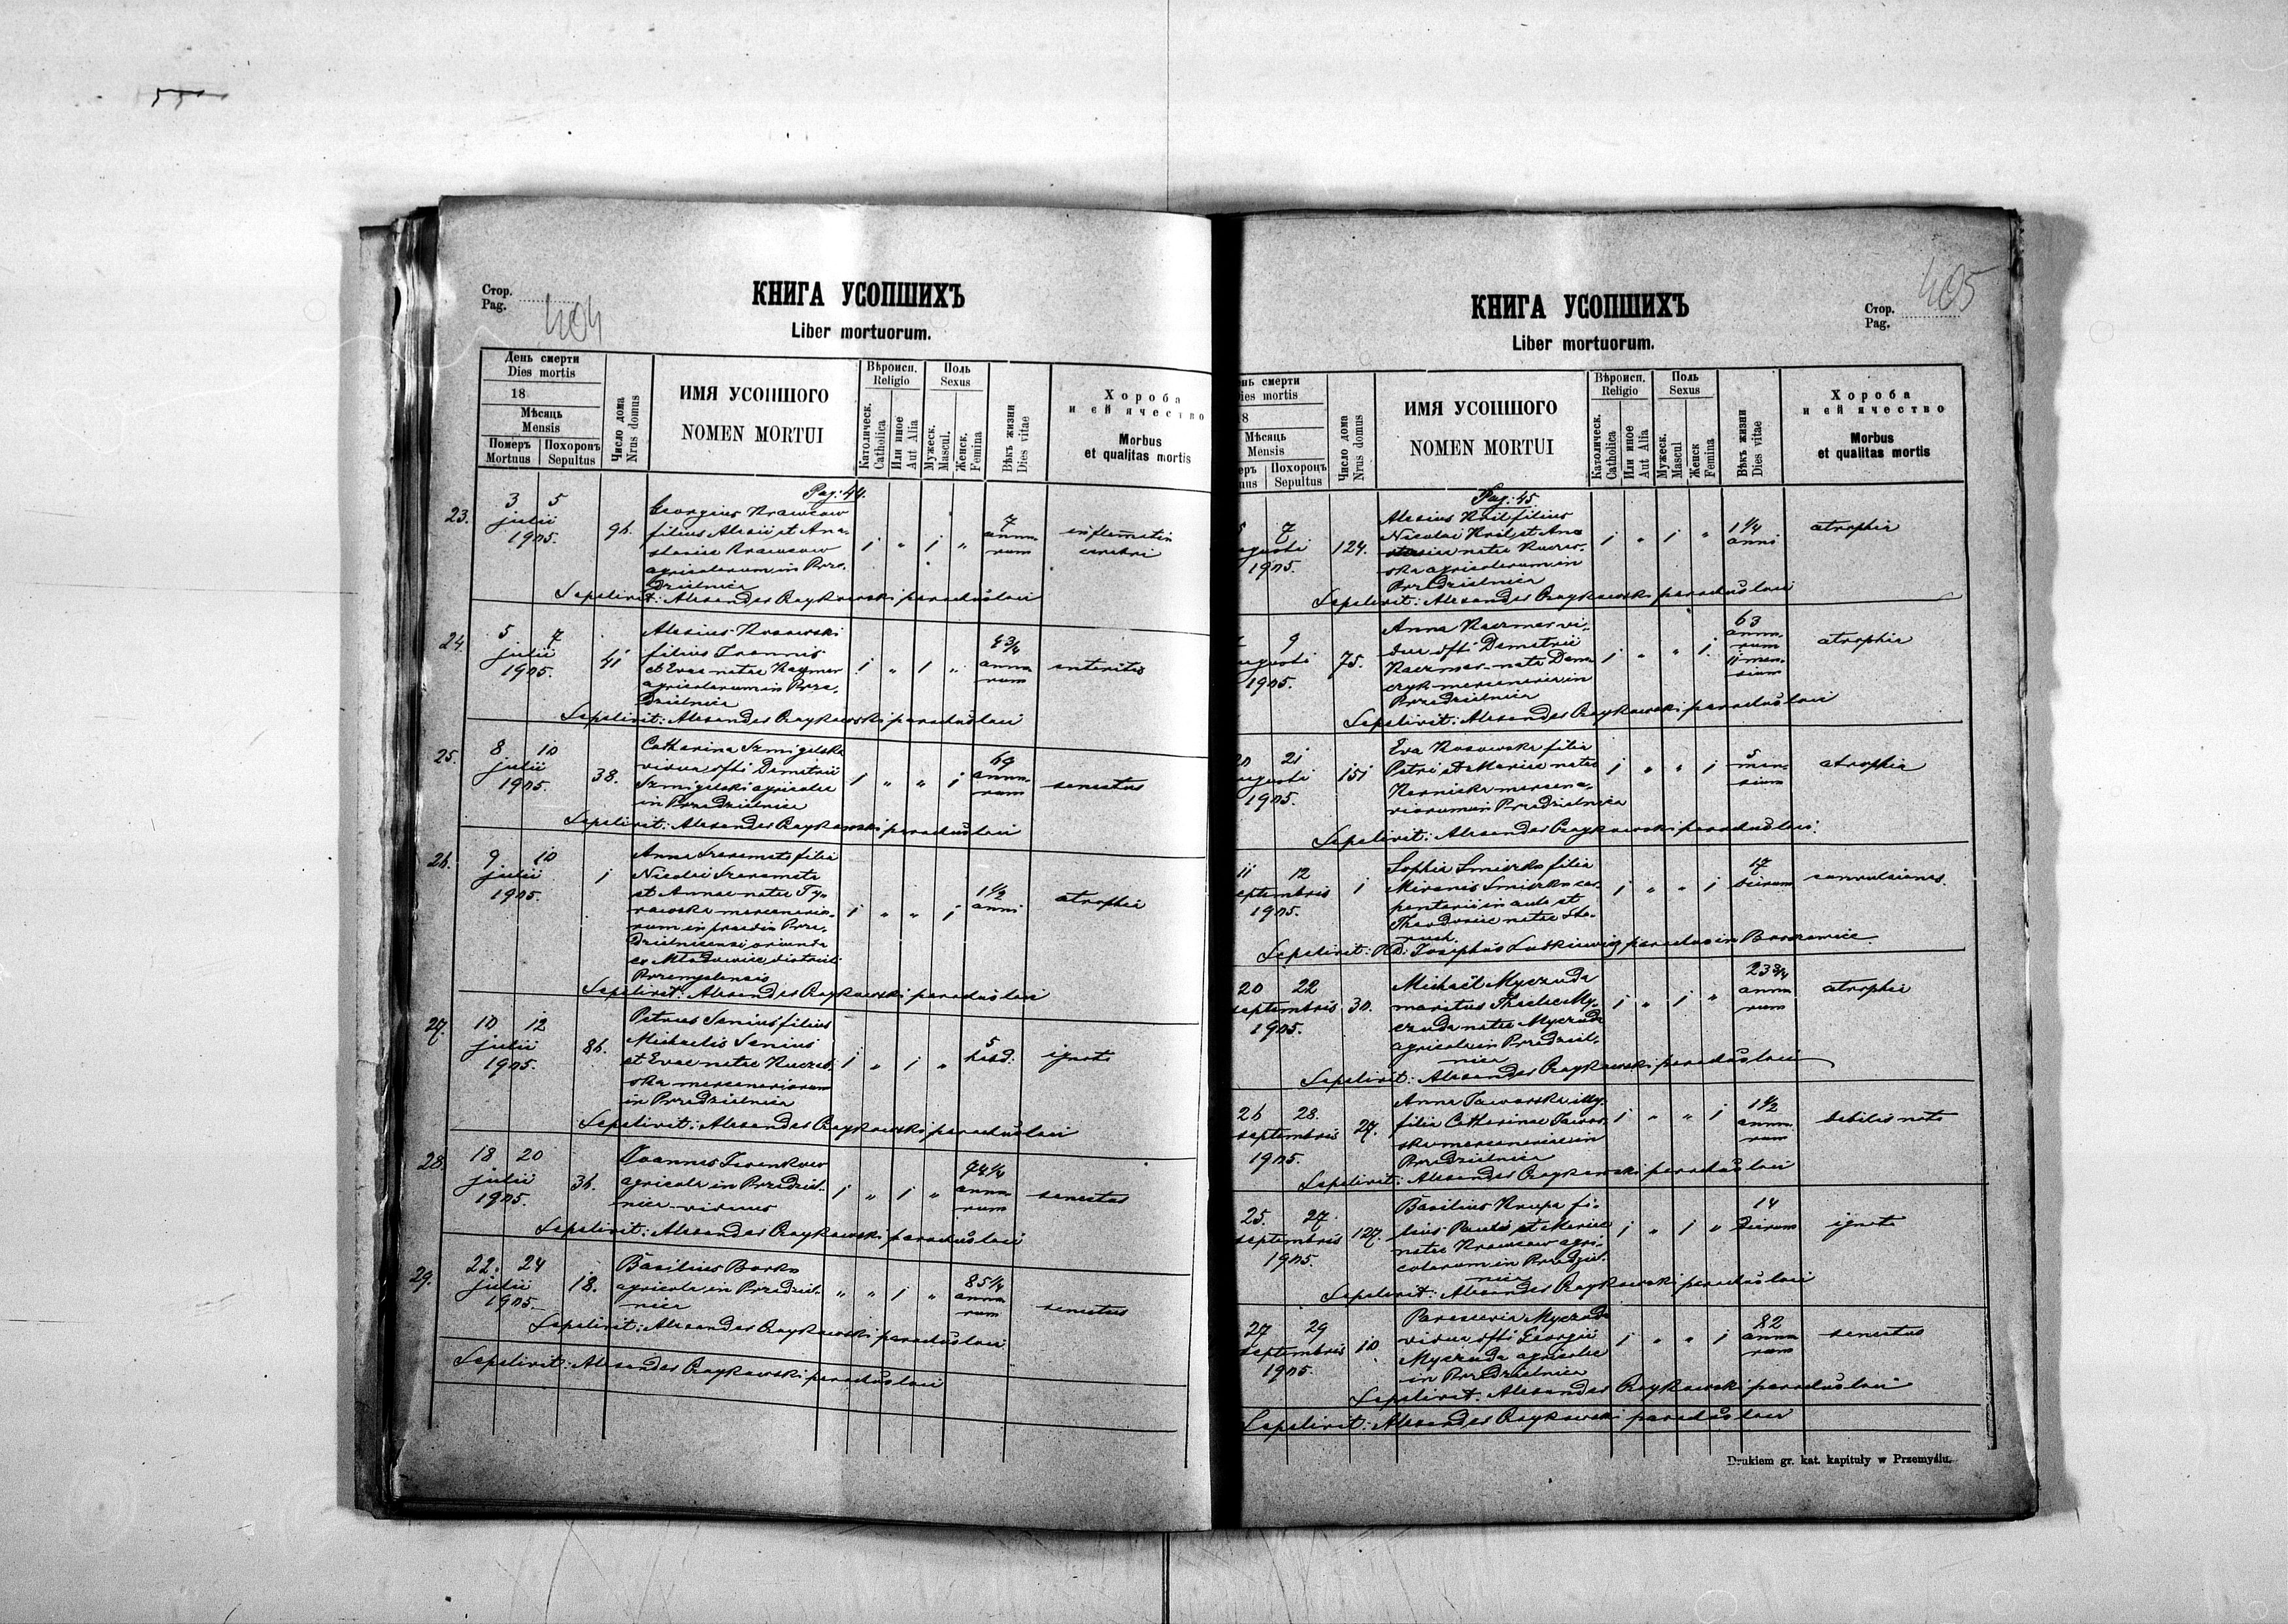 Стор.
Pag.
404
КНИГА УСОПШИХЪ
Liber mortuorum.
День смерти
Dies mortis
18
Мѣсяць
Mensis
Померъ
Mortuus
Похоронъ
Sepultus
Число дома
Nrus domus
ИМЯ УСОПШОГО
NOMEN MORTUI
Вѣроисп.
Religio
Католическ.
Catholica
Или иное
Aut Alia
Поль
Sexus
Мужеск.
Mascul.
Женск.
Femina
Вѣкъ жизни
Dies vitae
Хороба
и ей ячество
Morbus
et qualitas mortis
Pag: 44.
23.
3 5
julii
1905.
96.
Georgius Krawcow
filius Alexii et Ana-
stasiae Krawcow
agricolarum in Prze-
dzielnica
1 " 1 "
7
anno-
rum
inflammatio
cerebri
Sepelivit: Alexander Czaykowski parochus loci
24.
5 7
julii
1905.
41
Alexius Kosowski
filius Joannis
et Evae natae Kaczmar
agricolarum in Prze-
dzielnica
1 " 1 "
4 3/4
anno-
rum
enteritis
Sepelivit: Alexander Czaykowski parochus loci
25.
8 10
julii
1905.
38.
Catharina Szmigelska
vidua post Demetrii
Szmigelski agricolae
in Przedzielnica
1 " " 1
69
anno-
rum
senectus
Sepelivit: Alexander Czaykowski parochus loci
26.
9 10
julii
1905.
1
Anna Szeremeta filia
Nicolai Szeremeta
et Annae natae Ty-
rawska mercenario-
rum in praedio Prze-
dzielnicensi oriunda
ex Młodowice district:
Przemyslensis
1 " " 1
1 1/2
anni
atrophia
Sepelivit: Alexander Czaykowski parochus loci
27.
10 12
julii
1905.
86.
Petrus Senius filius
Michaelis Senius
et Evae natae Kuczab-
ska mercenariorum
in Przedzielnica
1 " 1 "
5
hebd.
ignota
Sepelivit: Alexander Czaykowski parochus loci
28.
18 20
julii
1905.
36.
Joannes Iwankow
agricola in Przedziel-
nica viduus
1 " 1 "
74 1/4
anno-
rum
senectus
Sepelivit: Alexander Czaykowski parochus loci
29.
22. 24
julii
1905.
18.
Basilius Borko
agricola in Przedziel-
nica
" " 1 "
85 1/4
anno-
rum
senectus
Sepelivit: Alexander Czaykowski parochus loci
Sepelivit: Alexander Czaykowski parochus loci
КНИГА УСОПШИХЪ
Liber mortuorum.
Стор.
Pag.
405
ень смерти
Dies mortis
8
Мѣсяць
Mensis
Похоронъ
Sepultus
Число дома
Nrus domus
ИМЯ УСОПШОГО
NOMEN MORTUI
Вѣроисп.
Religio
Католическ.
Catholica
Или иное
Aut Alia
Поль
Sexus
Мужеск.
Mascul
Женск
Femina
Вѣкъ жизни
Dies vitae
Хороба
и ей ячество
Morbus
et qualitas mortis
Pag: 45
5 7
augusti
1905.
124.
Alexius Kril filius
Nicolai Kril et Ana-
stasiae natae Kuczab-
ska agricolarum in
Przedzielnica
1 " 1 "
1 1/4
anni
atrophia
Sepelivit: Alexander Czaykowski parochus loci
9
augusti
1905.
75.
Anna Kaczmar vi-
dua post Demetrii
Kaczmar nata Dem-
czyk mercenaria in
Przedzielnica
1 " " 1
63
anno-
rum
11 men-
sium
atrophia
Sepelivit: Alexander Czaykowski parochus loci
20 21
augusti
1905.
151
Eva Kosowska filia
Petri et Mariae natae
mercena-
riorum in Przedzielnica
1 " " 1
5
men-
sium
atrophia
Sepelivit: Alexander Czaykowski parochus loci
11 12
septembris
1905.
1
Sophia Smiszko filia
Mironis Smiszko car-
pentarii in aula et
Theodosiae natae
1 " " 1
17
dierum
convulsiones.
Sepelivit: RD: Josephus parochus in
20 22
septembris
1905.
30.
Michaël Myczuda
maritus Theclae My-
czuda natae Myczuda
agricola in Przedziel-
nica
1 " 1 "
23 3/4
anno-
rum
atrophia
Sepelivit: Alexander Czaykowski parochus loci
26 28.
septembris
1905.
27.
Anna Jaworska illeg.
filia Catharinae Jawor-
ska mercenariae in
Przedzielnica
1 " " 1
1 1/2
anno-
rum
debilis nata
Sepelivit: Alexander Czaykowski parochus loci
25. 27.
septembris
1905.
127.
Basilius Krupa fi-
lius Pauli et Mariae
natae Krawcow agri-
colarum in Przedziel-
nica
1 " 1 "
14
dierum
ignota
Sepelivit: Alexander Czaykowski parochus loci
27 29
septembris
1905.
10
Parascevia Myczuda
vidua post Georgii
Myczuda agricolae
in Przedzielnica
1 " " 1
82
anno-
rum
senectus
Sepelivit: Alexander Czaykowski parochus loci
Sepelivit: Alexander Czaykowski parochus loci
Drukiem gr. kat. kapituły w Przemyślu.